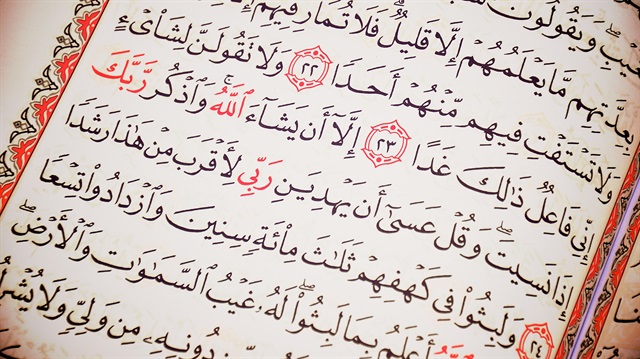 وَيَقُولُونَ
بِعِدَّتِهِم مَّا يَعْلَمُهُمْ إِلَّا قَلِيلٌ ۗ فَلَا تُمَارِ فِيهِمْ إِلَّا
وَلَا تَسْتَفْتِ فِيهِم مِّنْهُمْ أَحَدًا ٢٢ وَلَا تَقُولَنَّ لِشَا۟ىْءٍ
إِنِّي فَاعِلٌ ذَٰلِكَ غَدًا ٢٣ إِلَّآ أَن يَشَآءَ ٱللَّهُ ۚ وَٱذْكُر رَّبَّكَ
إِذَا نَسِيتَ ۖ وَقُلْ عَسَىٰٓ أَن يَهْدِيَنِ رَبِّي لِأَقْرَبَ مِنْ هَٰذَا رَشَدًا
٢٤ وَلَبِثُوا۟ فِي كَهْفِهِمْ ثَلَٰثَ مِا۟ئَةٍ سِنِينَ وَٱزْدَادُوا۟ تِسْعًا
أَعْلَمُ بِمَا لَبِثُوا۟ ۖ لَهُۥ غَيْبُ ٱلسَّمَٰوَٰتِ وَٱلْأَرْضِ ۖ
دُونِهِۦ مِن وَلِيٍّ وَلَا